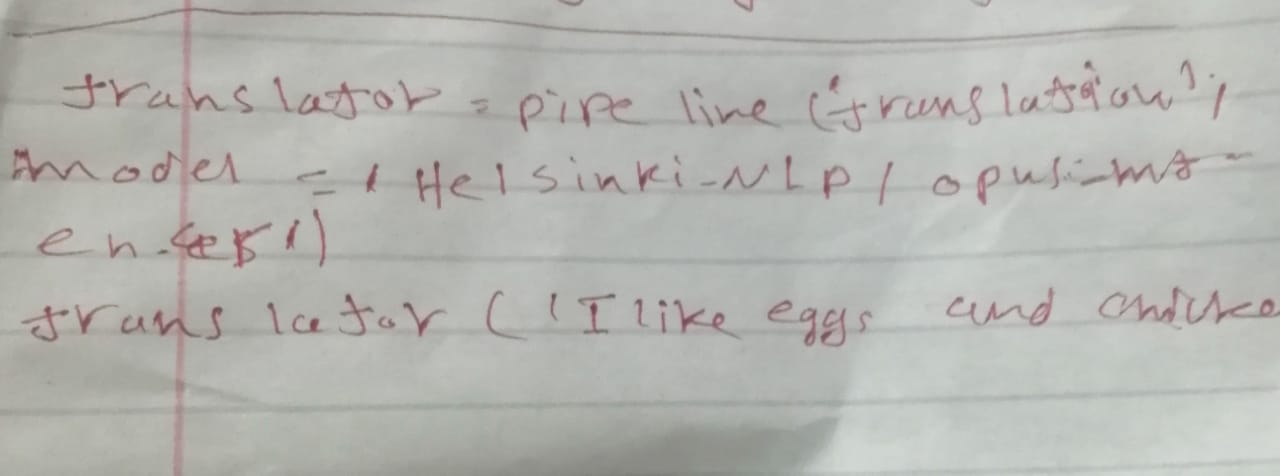 translator = pipe line ('translation',
model = 'Helsinki-NLP/opus-mt-
en-es')
translator ('I like eggs and